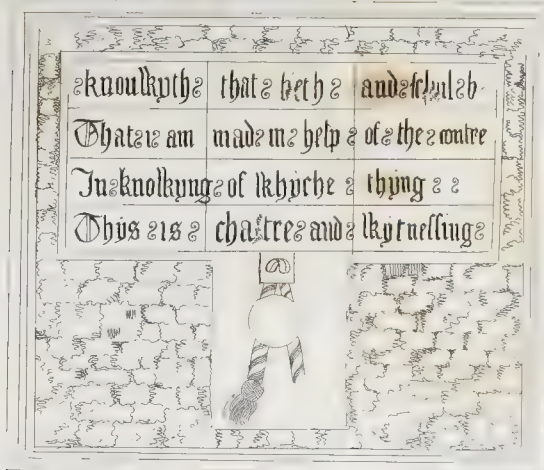 knouwyth that beth and schul b
That i am mad in help of the contre
In knowyng of whyche thyng
Thys is chartre and wytnessing